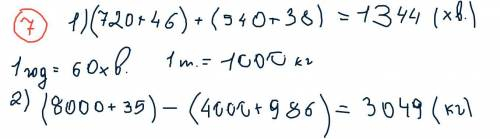 7 1) (720+46) + (540+38) = 1344 (хв.)
1 год = 60 хв. 1 т. = 1000 кг
2) (8000+35) - (4000+986) = 3049 (кг)